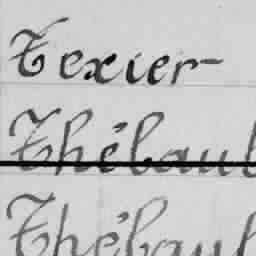 Texier
Thébaul
Thébaul